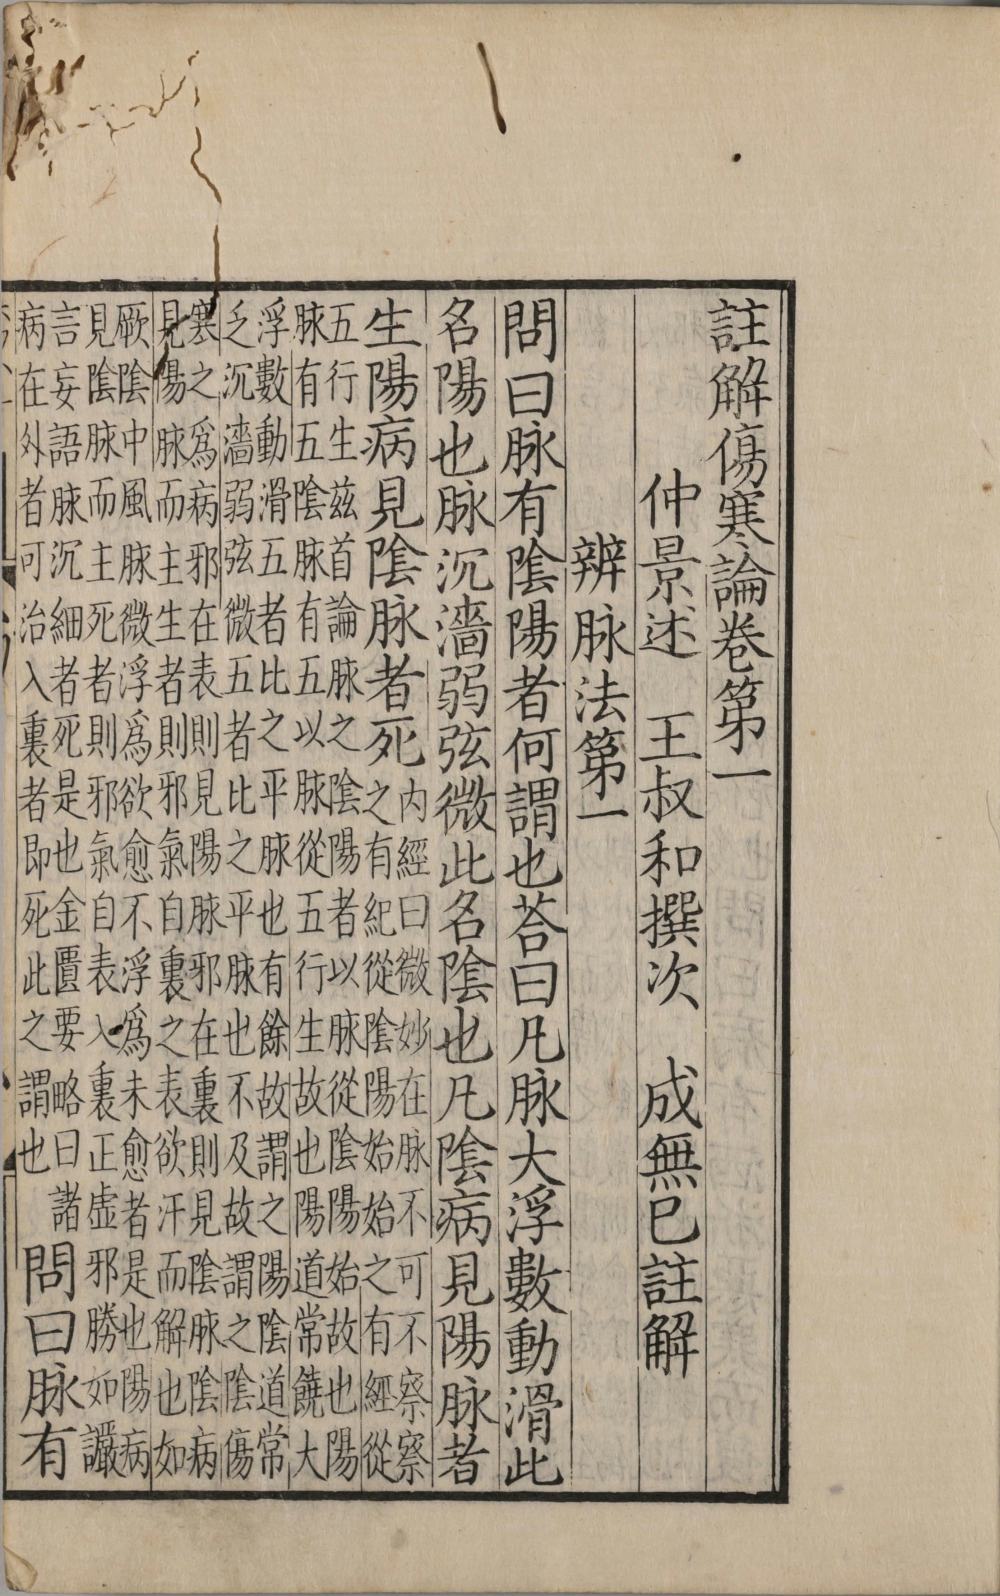 註解傷寒論卷第一
仲景述　王叔和撰次　成無已註解
辨脉法第一
問曰脉有隂陽者何謂也荅曰凡脉大浮數動滑此
名陽也脉沉濇弱弦微此名隂也凡隂病見陽脉者
生陽病見隂脉者死
内經曰微妙在脉不可不察察
之有紀從隂陽始始之有經從
五行生兹首論脉之隂陽者以脉從隂陽始故也陽
脉有五隂脉有五以脉從五行生故也陽道常饒大
浮數動滑五者比之平脉也有餘故謂之陽隂道常
乏沉濇弱弦微五者比之平脉也不及故謂之隂傷
寒之爲病邪在表則見陽脉邪在裏則見隂脉隂病
見陽脉而主生者則邪氣自裏之表欲汗而解也如
厥隂中風脉微浮爲欲愈不浮爲未愈者是也陽病
見隂脉而主死者則邪氣自表入裏正虛邪勝如讝
言妄語脉沉細者死是也金匱要略曰諸
病在外者可治入裏者即死此之謂也
問曰脉有